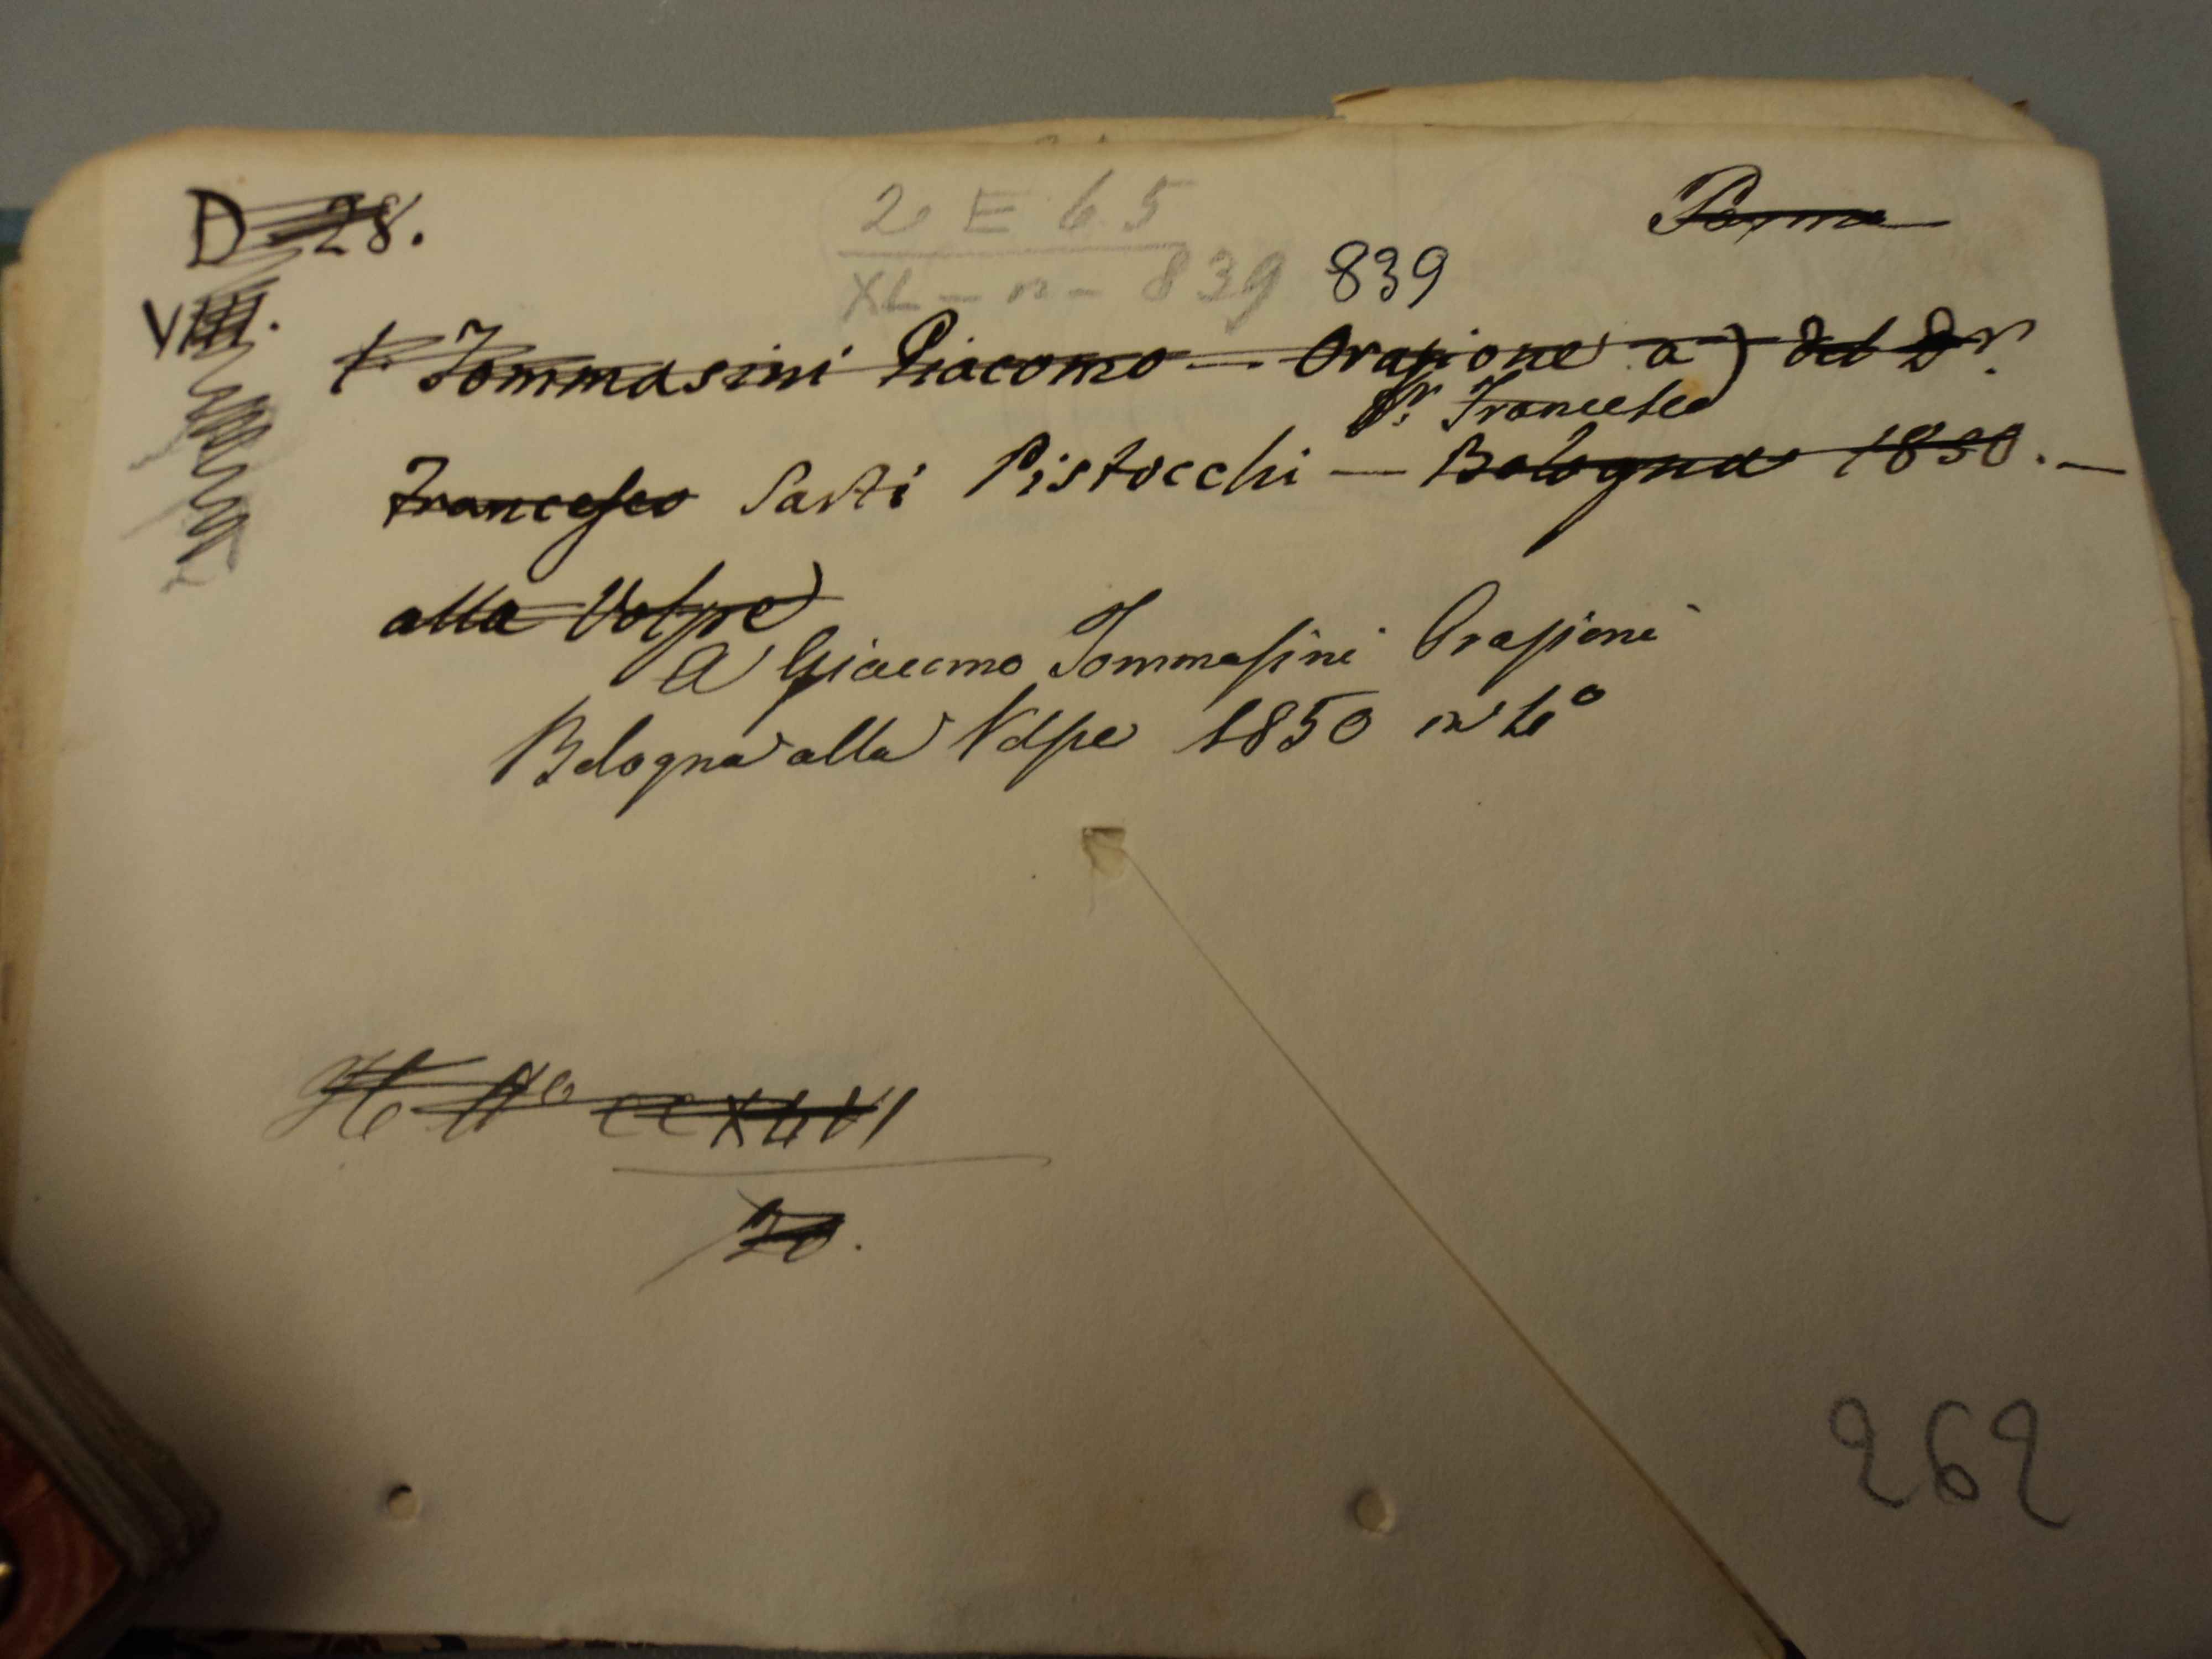 D 28.
2 E 65
Parma
XL - n - 839 839
VIII.
Tommasini Giacomo — Orazione a) del Dr.
Dr. Francesco
Francesco Sarti Pistocchi — Bologna 1850. —
alla Volpe)
A Giacomo Tommasini Orazioni
Bologna alla Volpe 1850 in 4°
No CCXLVI
262